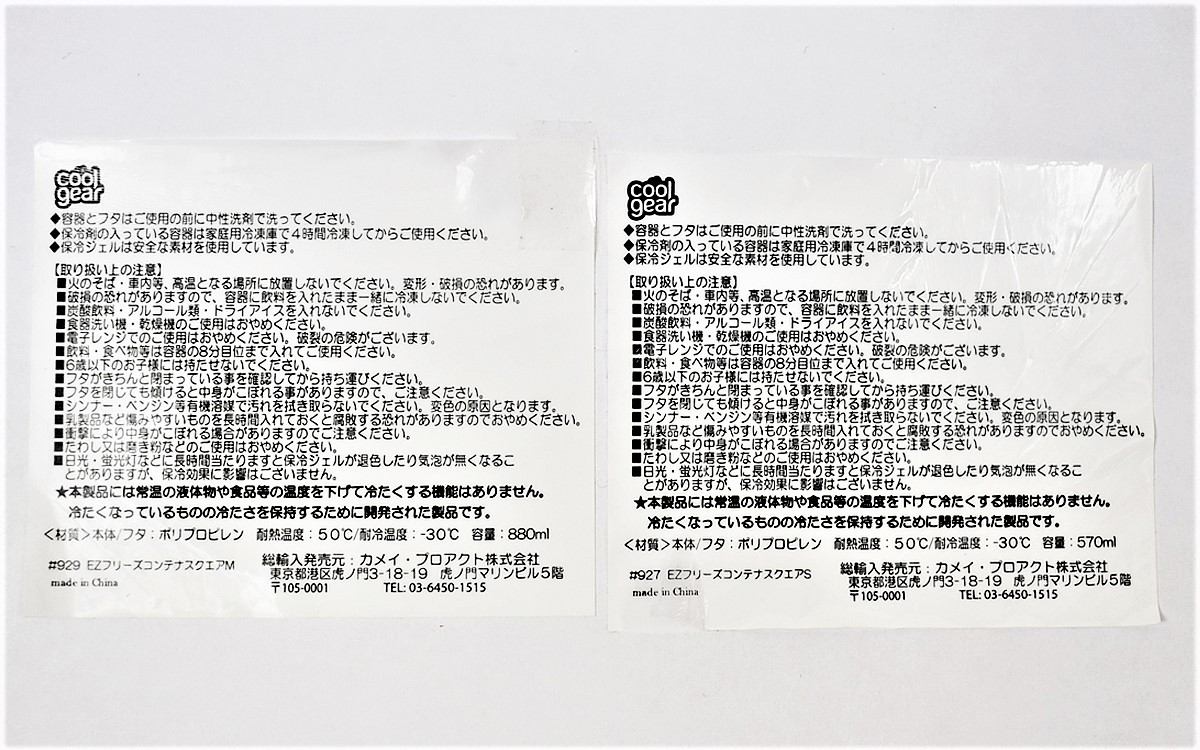 cool
gear
◆容器とフタはご使用の前に中性洗剤で洗ってください。
◆保冷剤の入っている容器は家庭用冷凍庫で4時間冷凍してからご使用ください。
◆保冷ジェルは安全な素材を使用しています。
【取り扱い上の注意】
■火のそば・車内等、高温となる場所に放置しないでください。変形・破損の恐れがあります。
■破損の恐れがありますので、容器に飲料を入れたまま一緒に冷凍しないでください。
■炭酸飲料・アルコール類・ドライアイスを入れないでください。
■食器洗い機・乾燥機のご使用はおやめください。
■電子レンジでのご使用はおやめください。破裂の危険がございます。
■飲料・食べ物等は容器の8分目位まで入れてご使用ください。
■6歳以下のお子様には持たせないでください。
■フタがきちんと閉まっている事を確認してから持ち運びください。
■フタを閉しても傾けると中身がこぼれる事がありますので、ご注意ください。
■シンナー・ベンジン等有機溶媒で汚れを拭き取らないでください。変色の原因となります。
■乳製品など傷みやすいものを長時間入れておくと腐敗する恐れがありますのでおやめください。
■衝撃により中身がこぼれる場合がありますのでご注意ください。
■たわし又は磨き粉などのご使用はおやめください。
■日光・蛍光灯などに長時間当たりますと保冷ジェルが退色したり気泡が無くなるこ
とがありますが、保冷効果に影響はございません。
★本製品には常温の液体物や食品等の温度を下げて冷たくする機能はありません。
冷たくなっているものの冷たさを保持するために開発された製品です。
<材質>本体/フタ：ポリプロピレン 耐熱温度：50℃/耐冷温度：-30℃ 容量：880ml
#929 EZフリーズコンテナスクエアM
made in China
総輸入発売元：カメイ・プロアクト株式会社
東京都港区虎ノ門3-18-19 虎ノ門マリンビル5階
〒105-0001 TEL: 03-6450-1515
cool
gear
◆容器とフタはご使用の前に中性洗剤で洗ってください。
◆保冷剤の入っている容器は家庭用冷凍庫で4時間冷凍してからご使用ください。
◆保冷ジェルは安全な素材を使用しています。
【取り扱い上の注意】
■火のそば・車内等、高温となる場所に放置しないでください。変形・破損の恐れがあります。
■破損の恐れがありますので、容器に飲料を入れたまま一緒に冷凍しないでください。
■炭酸飲料・アルコール類・ドライアイスを入れないでください。
■食器洗い機・乾燥機のご使用はおやめください。
■電子レンジでのご使用はおやめください。破裂の危険がございます。
■飲料・食べ物等は容器の8分目位まで入れてご使用ください。
■6歳以下のお子様には持たせないでください。
■フタがきちんと閉まっている事を確認してから持ち運びください。
■フタを閉しても傾けると中身がこぼれる事がありますので、ご注意ください。
■シンナー・ベンジン等有機溶媒で汚れを拭き取らないでください。変色の原因となります。
■乳製品など傷みやすいものを長時間入れておくと腐敗する恐れがありますのでおやめください。
■衝撃により中身がこぼれる場合がありますのでご注意ください。
■たわし又は磨き粉などのご使用はおやめください。
■日光・蛍光灯などに長時間当たりますと保冷ジェルが退色したり気泡が無くなるこ
とがありますが、保冷効果に影響はございません。
★本製品には常温の液体物や食品等の温度を下げて冷たくする機能はありません。
冷たくなっているものの冷たさを保持するために開発された製品です。
<材質>本体/フタ：ポリプロピレン 耐熱温度：50℃/耐冷温度：-30℃ 容量：570ml
#927 EZフリーズコンテナスクエアS
made in China
総輸入発売元：カメイ・プロアクト株式会社
東京都港区虎ノ門3-18-19 虎ノ門マリンビル5階
〒105-0001 TEL: 03-6450-1515